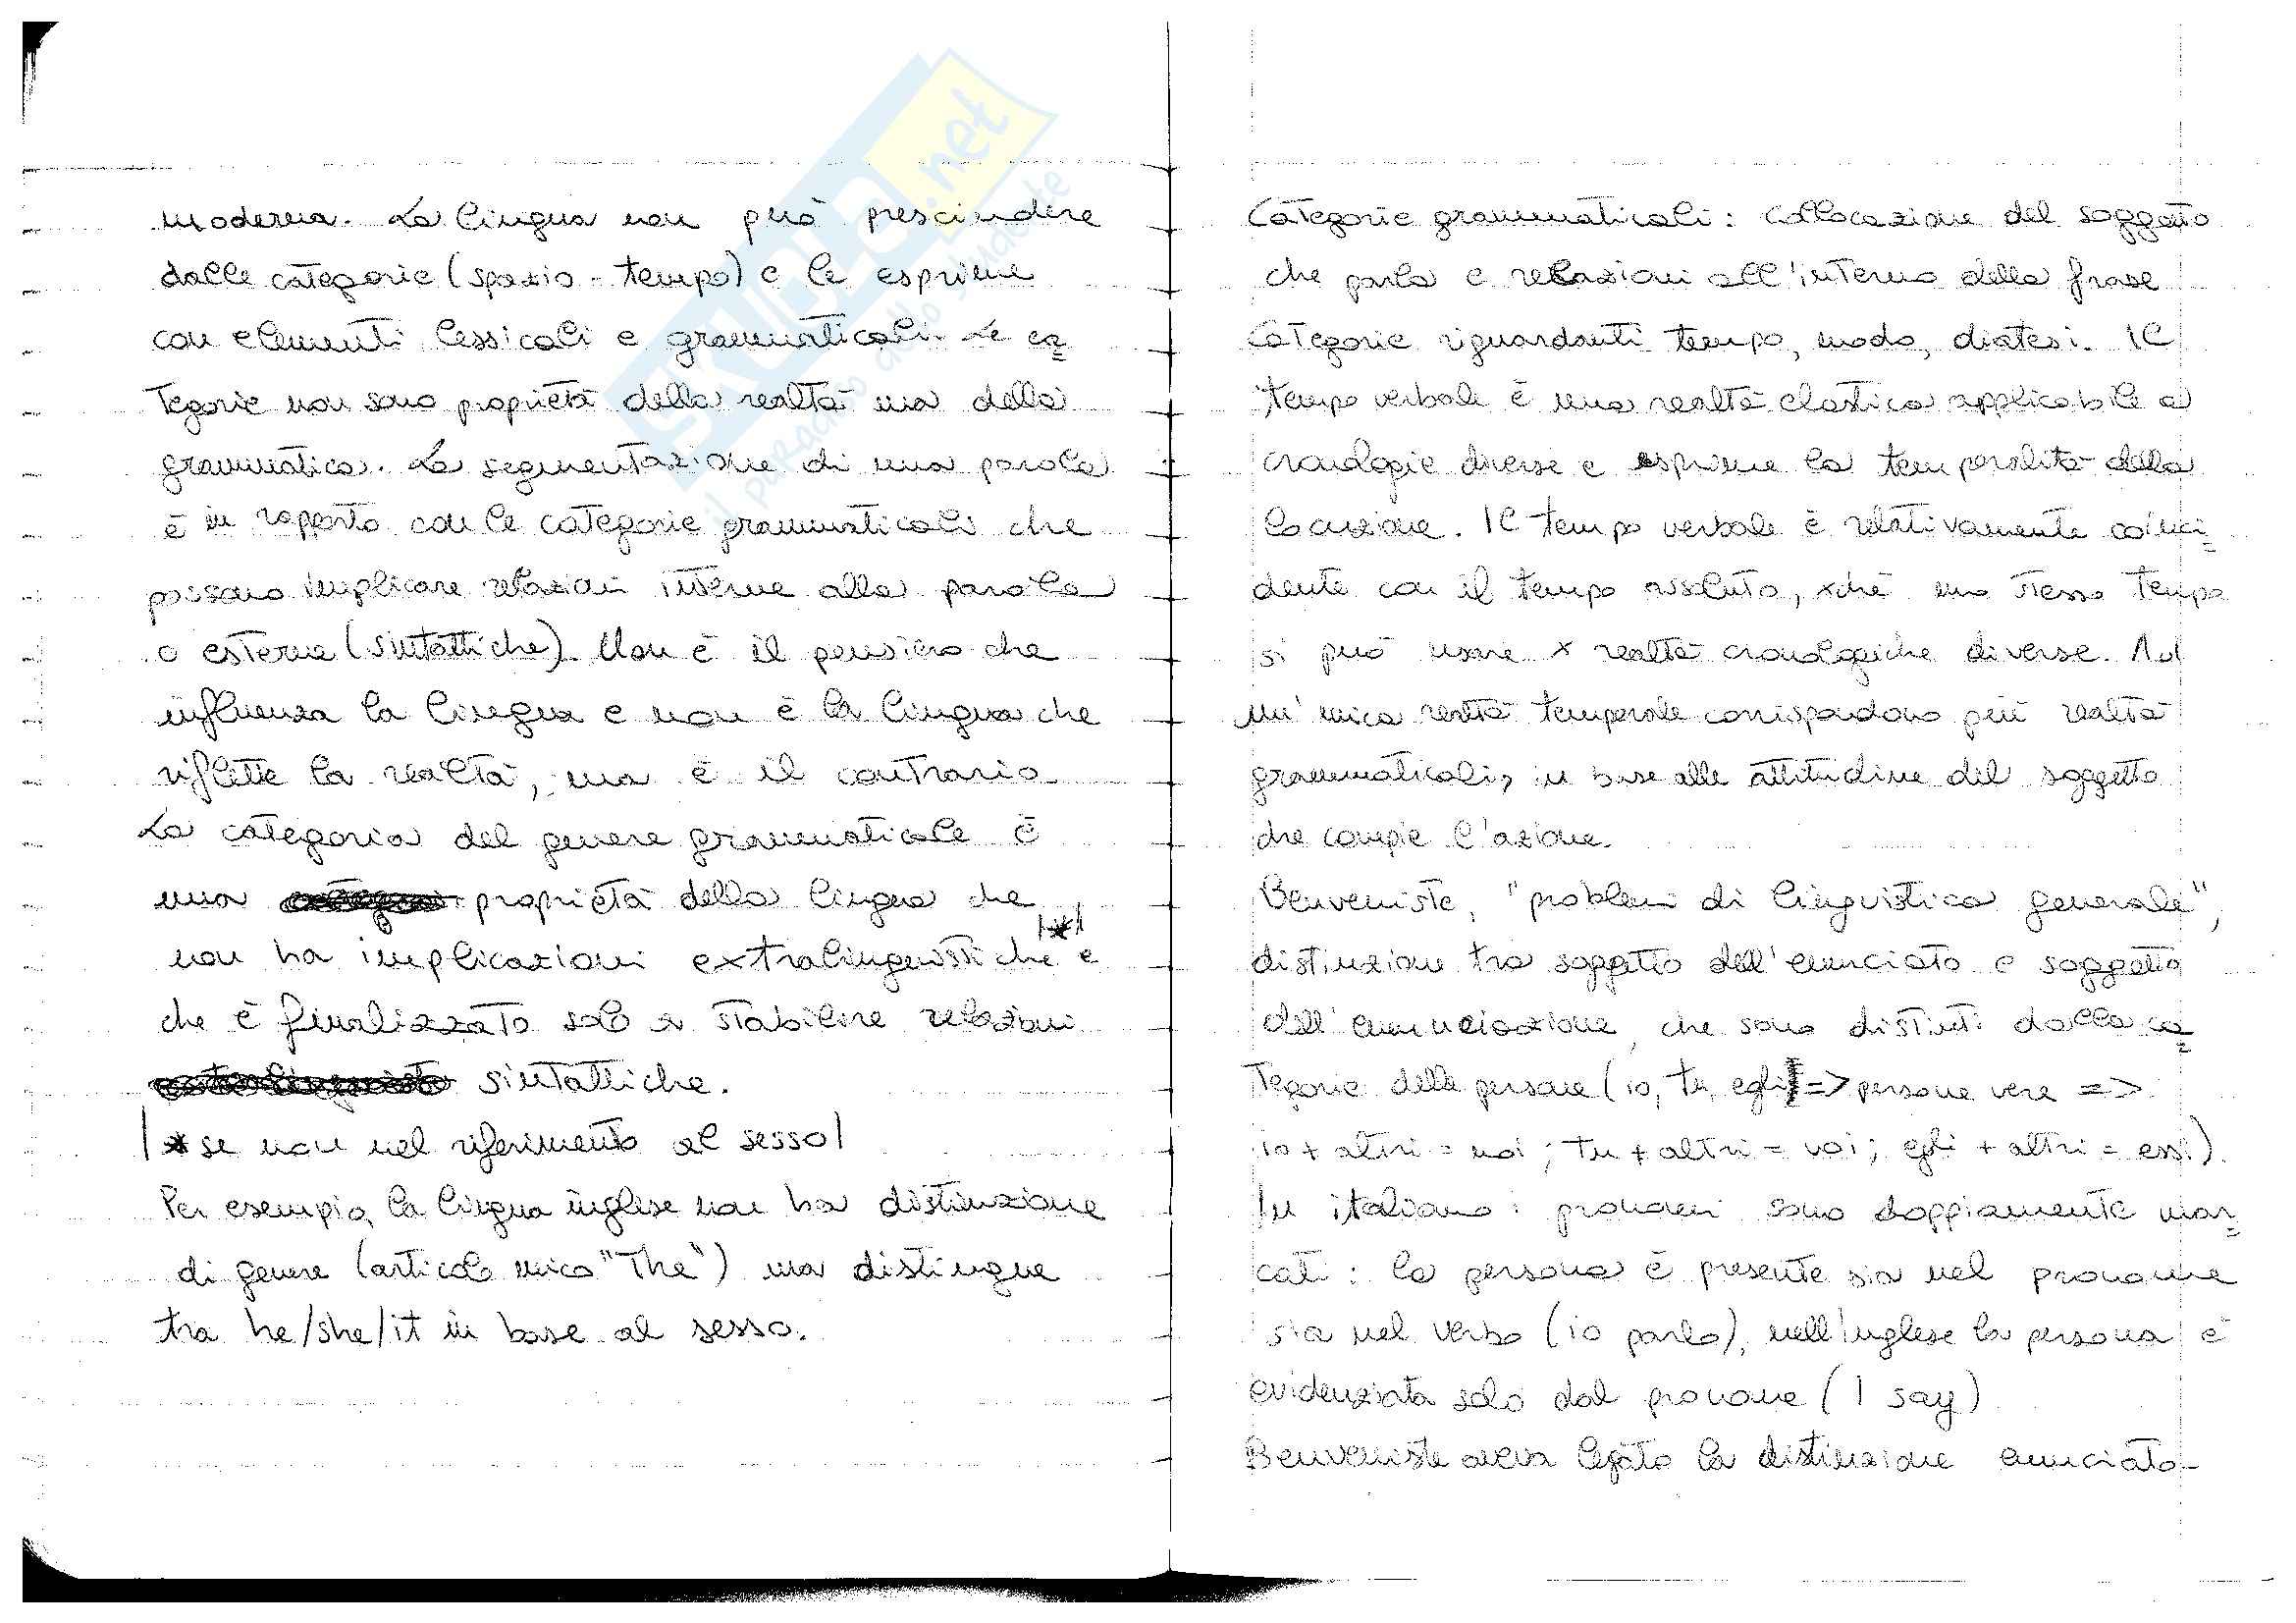 moderna. La lingua non può prescindere
dalle categorie (spazio - tempo) e le esprime
con elementi lessicali e grammaticali. Le ca=
tegorie non sono proprietà della realtà ma della
grammatica. La segmentazione di una parola
è in rapporto con le categorie grammaticali che
possono implicare relazioni interne alla parola
o esterne (sintattiche). Non è il pensiero che
influenza la lingua e non è la lingua che
riflette la realtà, ma è il contrario.
La categoria del genere grammaticale è
una proprietà della lingua che
non ha implicazioni extralinguistiche |*| e
che è finalizzato solo a stabilire relazioni
sintattiche.
|* se non nel riferimento al sesso|
Per esempio, la lingua inglese non ha distinzione
di genere (articolo unico "The") ma distingue
tra he/she/it in base al sesso.
Categorie grammaticali: collocazione del soggetto
che parla e relazioni all'interno della frase
Categorie riguardanti tempo, modo, diatesi. Il
tempo verbale è una realtà elastica applicabile a
cronologie diverse e esprime la temporalità della
locuzione. Il tempo verbale è relativamente coinci=
dente con il tempo assoluto, xchè uno stesso tempo
si può usare x realtà cronologiche diverse. Ad
un'unica realtà temporale corrispondono più realtà
grammaticali, in base alle attitudine del soggetto
che compie l'azione.
Benveniste, "problemi di linguistica generale",
distinzione tra soggetto dell'enunciato e soggetto
dell'enunciazione, che sono distinti dalla ca=
tegorie delle persone (io, tu, egli => persone vere =>
io + altri = noi; tu + altri = voi; egli + altri = essi).
In italiano i pronomi sono doppiamente mar=
cati: la persona è presente sia nel pronome
sia nel verbo (io parlo), nell'inglese la persona è
evidenziata solo dal pronome (I say)
Benveniste aveva legato la distinzione enunciato-
SKUOLA.net
il paradiso dello studente